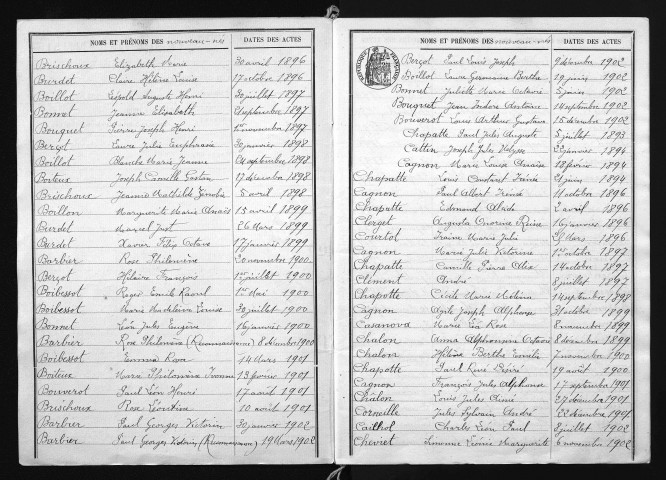 NOMS ET PRÉNOMS DES nouveau-nés DATES DES ACTES
Brischoux Elizabeth Marie 30 avril 1896
Burdet Claire Hélène Louise 17 octobre 1896
Boillot Léopold Auguste Henri 30 juillet 1897
Bonnet Jeanne Elisabeth septembre 1897
Bouquet Pierre Joseph Henri 1er novembre 1897
Berçot Laure Julie Euphrasie 30 janvier 1898
Boillot Blanche Marie Jeanne septembre 1898
Boiteux Joseph Camille Gaston 17 décembre 1898
Brischoux Jeanne Mathilde Zénobie 5 avril 1898
Boillon Marguerite Marie Anaïs 15 avril 1899
Burdet Marcel Just 26 Mars 1899
Burdet Xavier Félix Octave 17 janvier 1899
Barbier Rose Philomène 20 novembre 1900
Berçot Hilaire François 1er juillet 1900
Boibessot Roger Emile Raoul 1er Mai 1900
Boibessot Marie Madeleine Louise 30 juillet 1900
Bonnet Léon Jules Eugène 16 janvier 1900
Barbier Rose Philomène (Reconnaissance) 8 décembre 1900
Boibessot Emma Rose 14 Mars 1901
Boiteux Marie Philomène Yvonne 13 février 1901
Bouverot Paul Léon Henri 17 août 1901
Brischoux Rosa Léontine 10 août 1901
Barbier Paul Georges Victorin 30 janvier 1902
Barbier Paul Georges Victorin (Reconnaissance) 19 Mars 1902
NOMS ET PRÉNOMS DES nouveau-nés DATES DES ACTES
Berçot Paul Louis Joseph 9 décembre 1902
Boillot Laure Germaine Berthe 19 juin 1902
Bonnet Juliette Marie Octavie 5 janvier 1902
Bouquet Jean Isidore Antoine 14 septembre 1902
Bouverot Louis Arthur Gustave 15 décembre 1902
Chapatte Paul Jules Auguste 5 juillet 1893
Cattin Joseph Jules 22 janvier 1894
Cagnon Marie Louise 18 février 1894
Chapatte Louis Constant Irénée juin 1894
Cagnon Paul Albert Irénée 19 octobre 1896
Chapatte Edmond 2 avril 1896
Clerget Augusta Onorine Reine 16 janvier 1896
Courtot Irénée Marie Julie Mars 1896
Cagnon Marie Julie Victorine 1er octobre 1897
Chapatte Camille Pierre Alix 14 octobre 1897
Clément André 8 juillet 1897
Chapatte Cécile Marie Mélina 14 septembre 1898
Cagnon Joseph Alphonse 31 octobre 1899
Casanova Marie Léa Rose 8 novembre 1899
Chalon Anna Alphonsine 8 décembre 1899
Chalon Hélène Berthe Emélie 7 novembre 1900
Chapotte Paul René Désiré 19 août 1900
Cagnon François Jules Alphonse 17 septembre 1901
Châlon Louis Jules Aimé 27 décembre 1901
Corneille Jules Sylvain André 22 décembre 1901
Cailhol Charles Léon Paul 8 juillet 1902
Cheviet Simonne Léonie Marguerite 6 novembre 1902